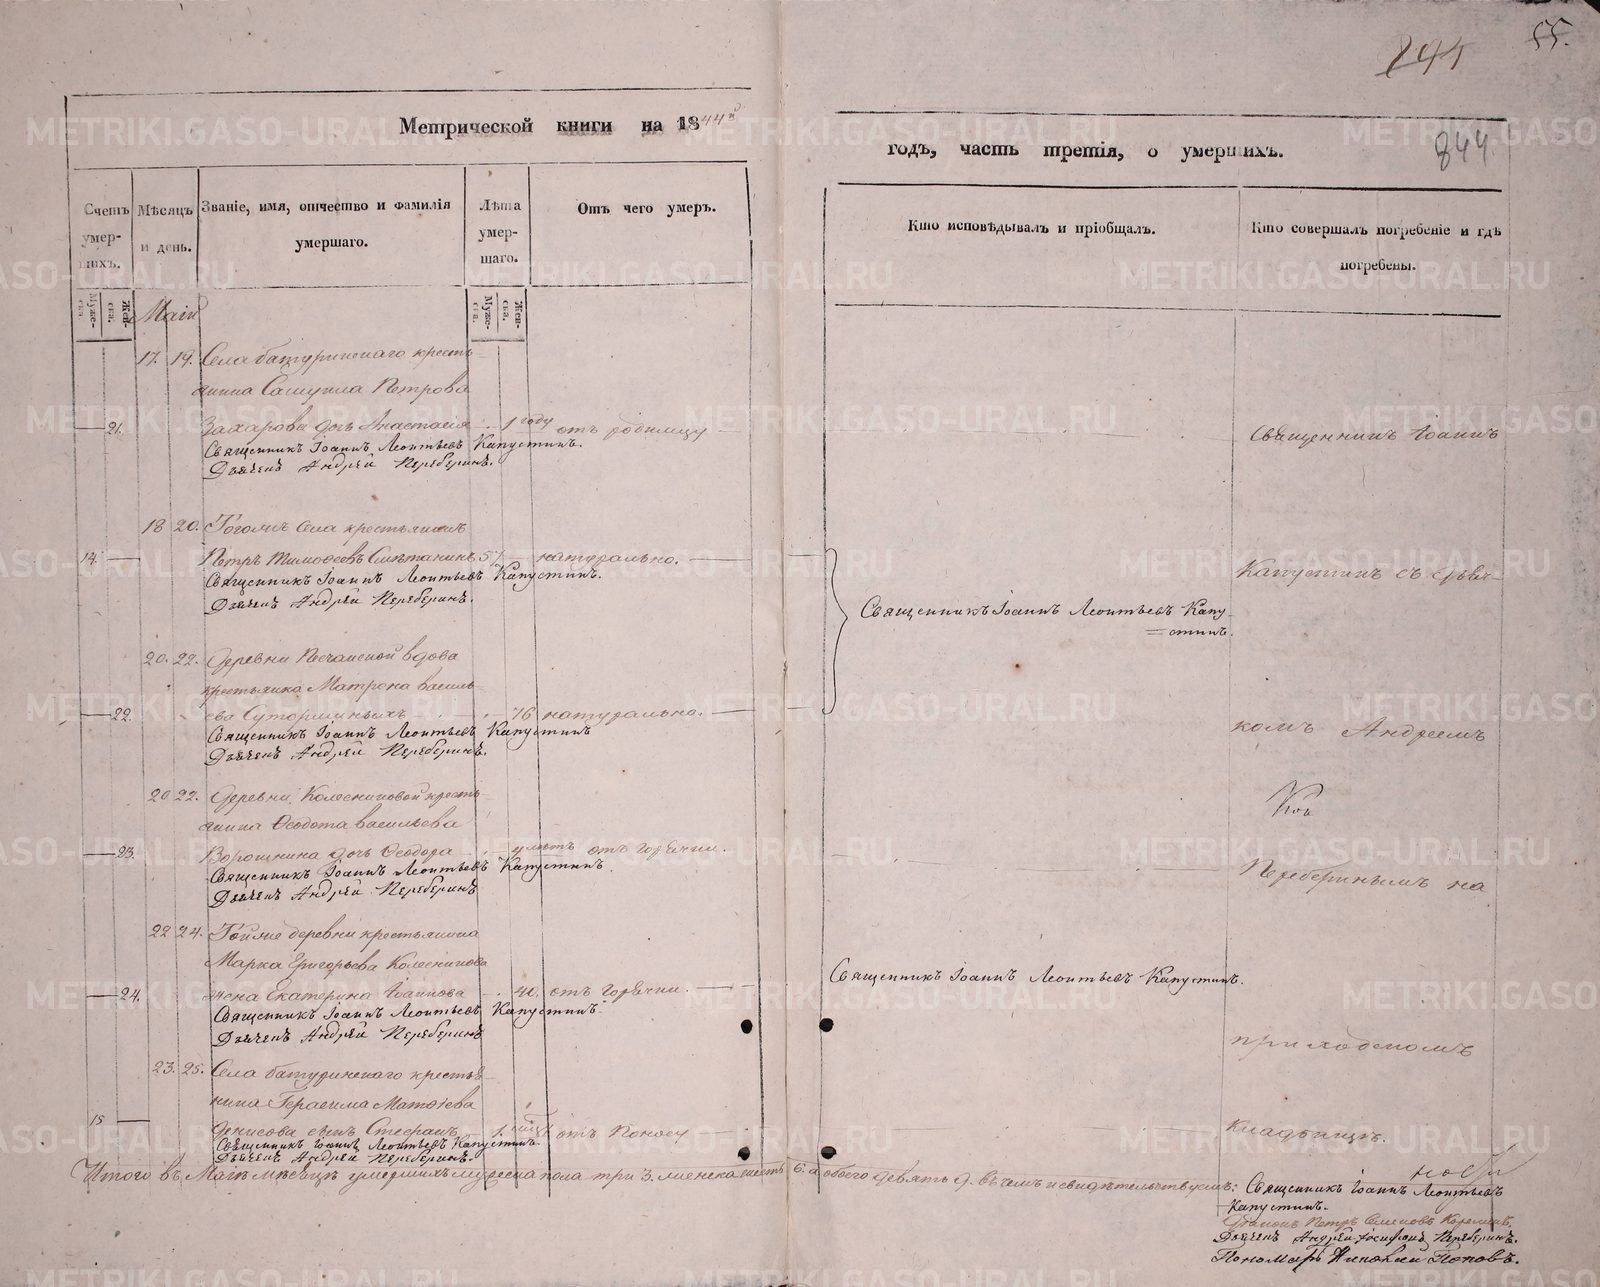 55.
844.
Метрической книги на 1844й
годъ, часть третія, о умершихъ.
Счетъ умерших.
Мѣсяцъ и день.
Званіе, имя, отчество и фамилія умершаго.
Лѣта умершаго.
Отъ чего умеръ.
Кто исповѣдывалъ и пріобщалъ.
Кто совершалъ погребеніе и гдѣ погребены.
Маій
17. 19. Села батуринскаго кресть-
янина Самуила Петрова
21. Захарова дочь Анастасія 1 году отъ родимцу
Священникъ Іоаннъ Леонтьевъ Капустинъ.
Дьячекъ Андрей Переберинъ.
Священникъ Іоаннъ
18 20. Тогожъ Села крестьянинъ
14. Петръ Тимоѳеевъ Сметанинъ 57 натурально.
Священникъ Іоаннъ Леонтьевъ Капустинъ.
Дьячекъ Андрей Переберинъ.
Священникъ Іоаннъ Леонтьевъ Капу-
стинъ.
Капустинъ съ дьяч-
20. 22. Деревни Песчанской вдова
крестьянка Матрона василь-
22. ева Суторминыхъ 76 натурально.
Священникъ Іоаннъ Леонтьевъ Капустинъ
Дьячекъ Андрей Переберинъ.
комъ Андреемъ
20 22. Деревни Колесниковой кресть-
янина Ѳеодота васильева
23. Ворошнина дочь Ѳеодора 4 лѣтъ отъ горячки.
Священникъ Іоаннъ Леонтьевъ Капустинъ.
Дьячекъ Андрей Переберинъ
Переберинымъ на
22 24. Тойже деревни крестьянина
Марка Григорьева Колесникова
24. жена Екатерина Іоаннова 40. отъ горячки.
Священникъ Іоаннъ Леонтьевъ Капустинъ.
Дьячекъ Андрей Переберинъ
Священникъ Іоаннъ Леонтьевъ Капустинъ.
приходскомъ
23. 25. Села батуринскаго крестья-
нина Герасима Матѳіева
15 Денисова сынъ Стефанъ 1. отъ поносу
Священникъ Іоаннъ Леонтьевъ Капустинъ.
Дьячекъ Андрей Переберинъ.
кладбищѣ.
Итого въ Маіѣ мѣсяцѣ умершихъ мужеска пола три 3. женска шесть 6. а обоего девять 9. въ чемъ и свидѣтельствуемъ: Священникъ Іоаннъ Леонтьевъ
Капустинъ.
Діаконъ Петръ Семеновъ
Дьячекъ Андрей Іосифовъ Переберинъ.
Пономарь Николай Поповъ.
METRIKI.GASO-URAL.RU